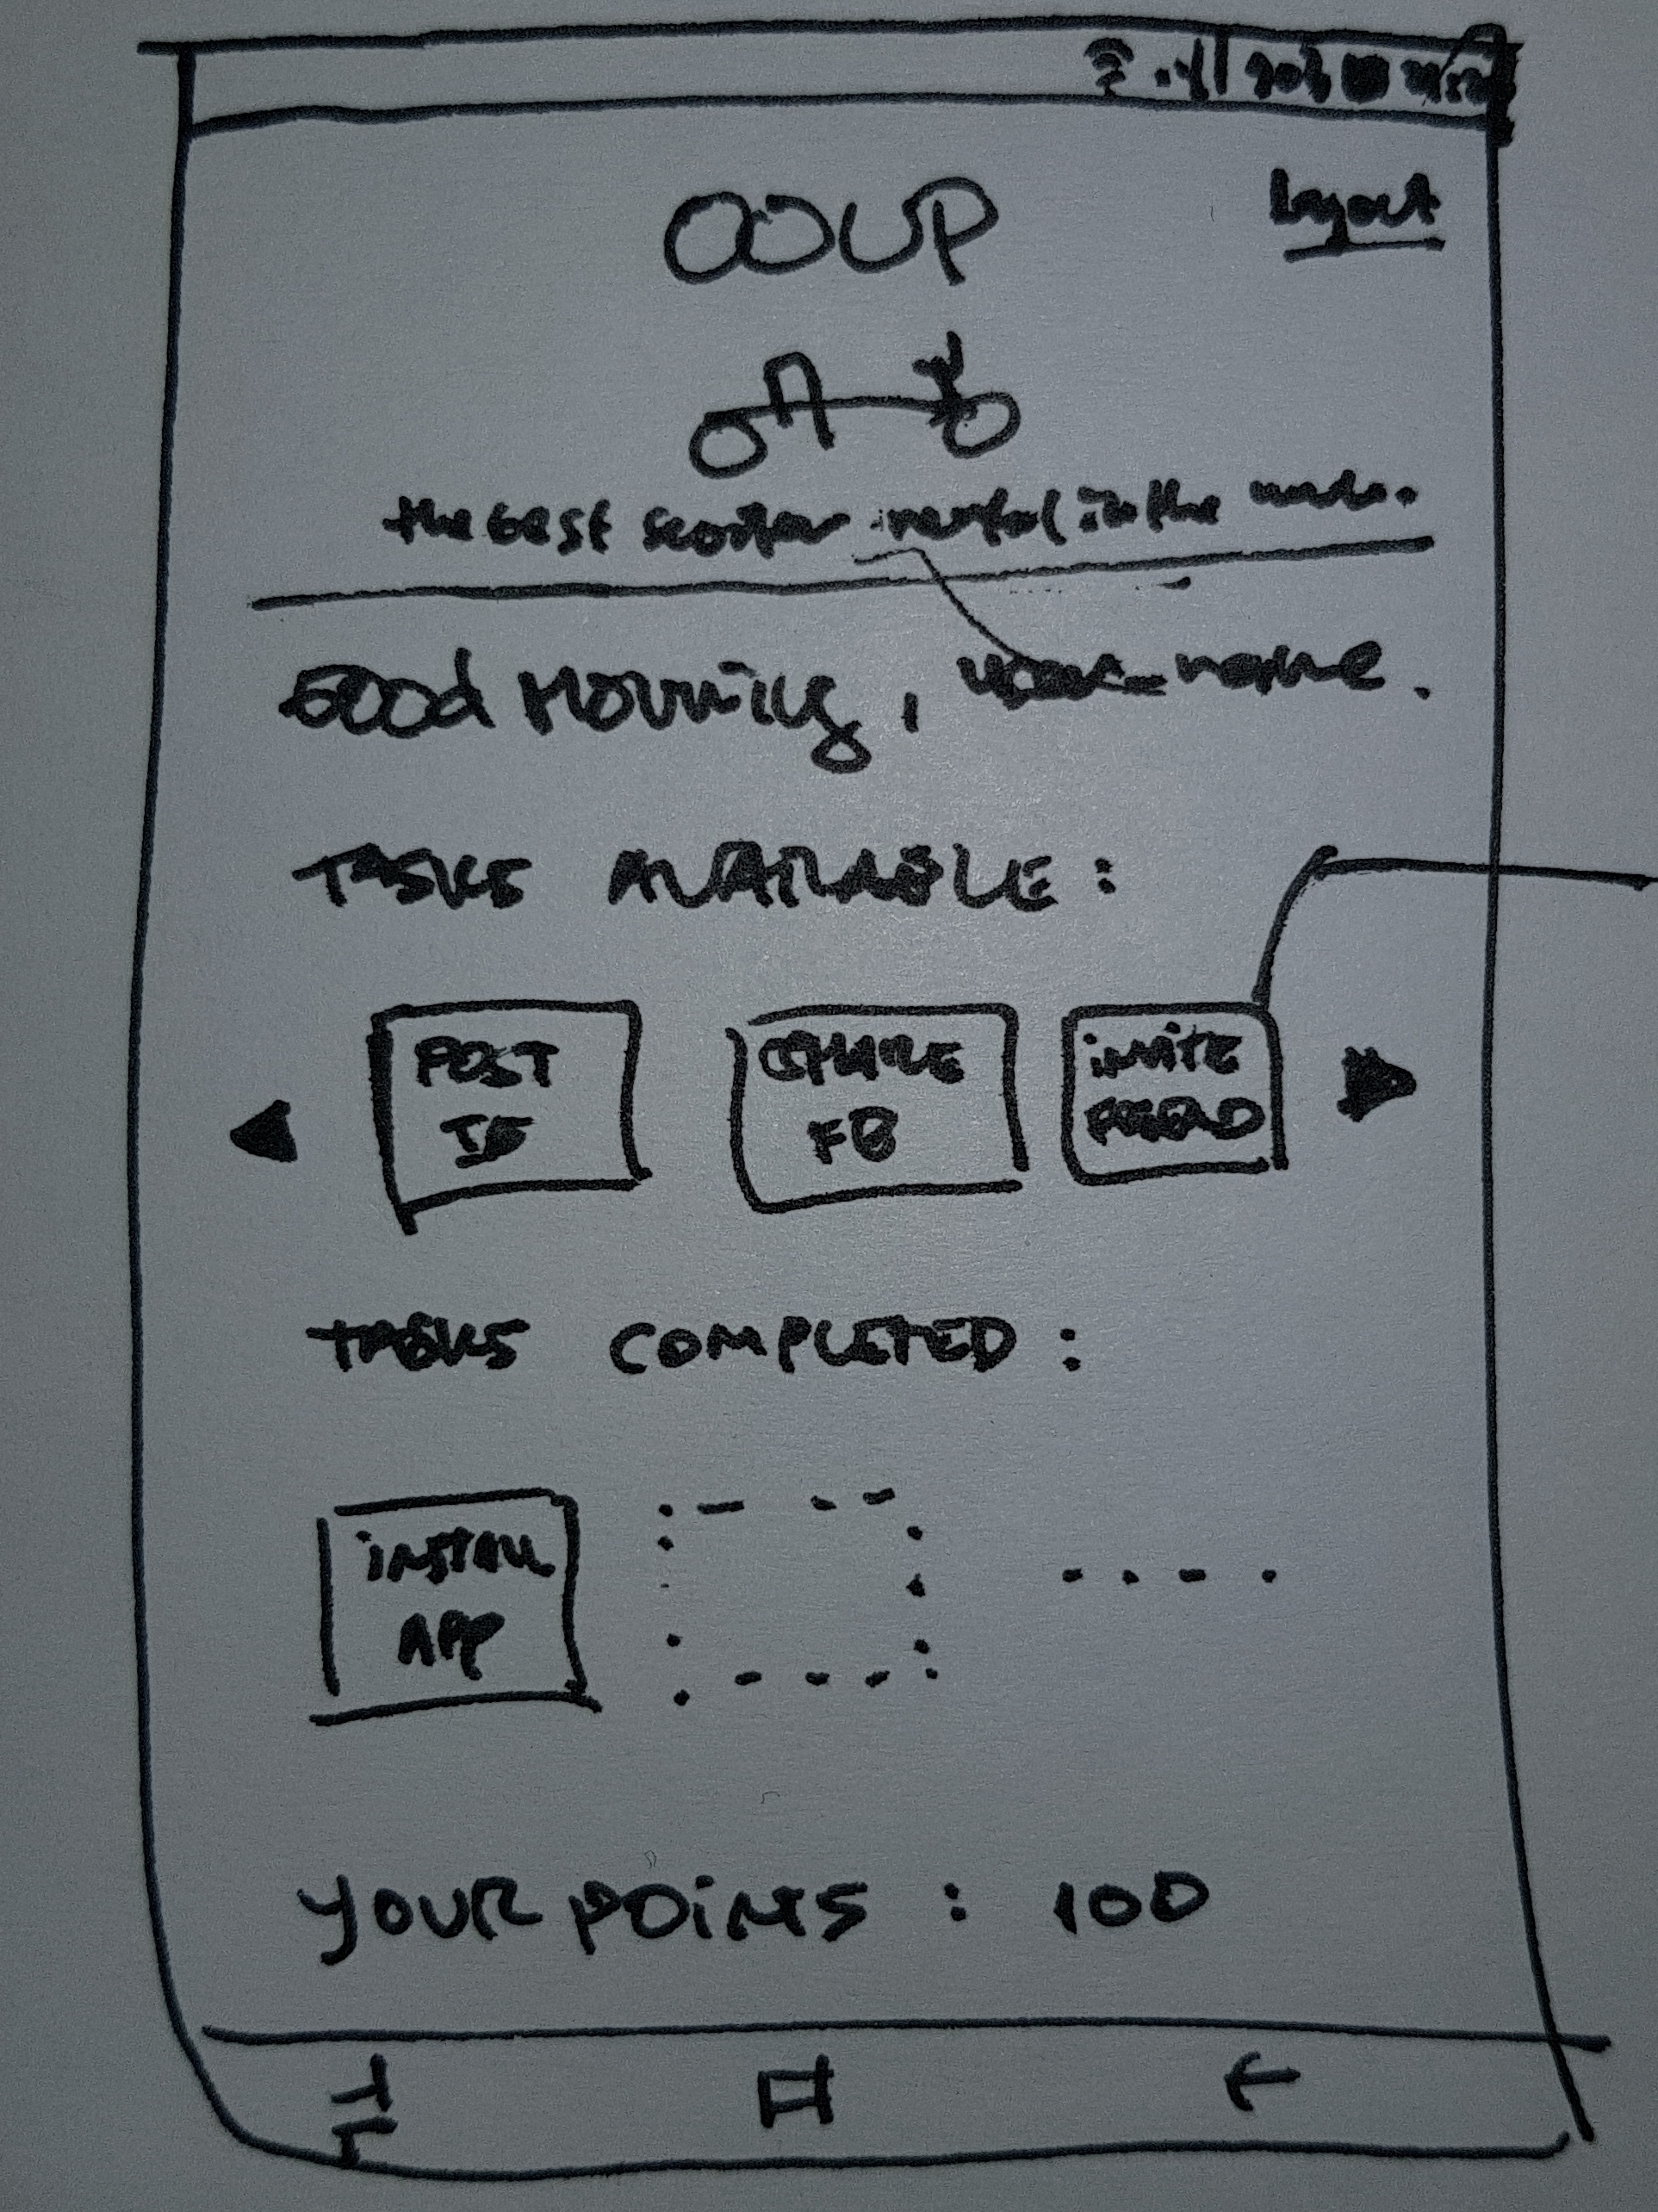 COUP
the best scooter rental in the
Good Morning, user_name.
TASKS AVAILABLE:
POST
SHARE
FB
INVITE
FRIEND
TASKS COMPLETED:
INSTALL
APP
YOUR POINTS : 100